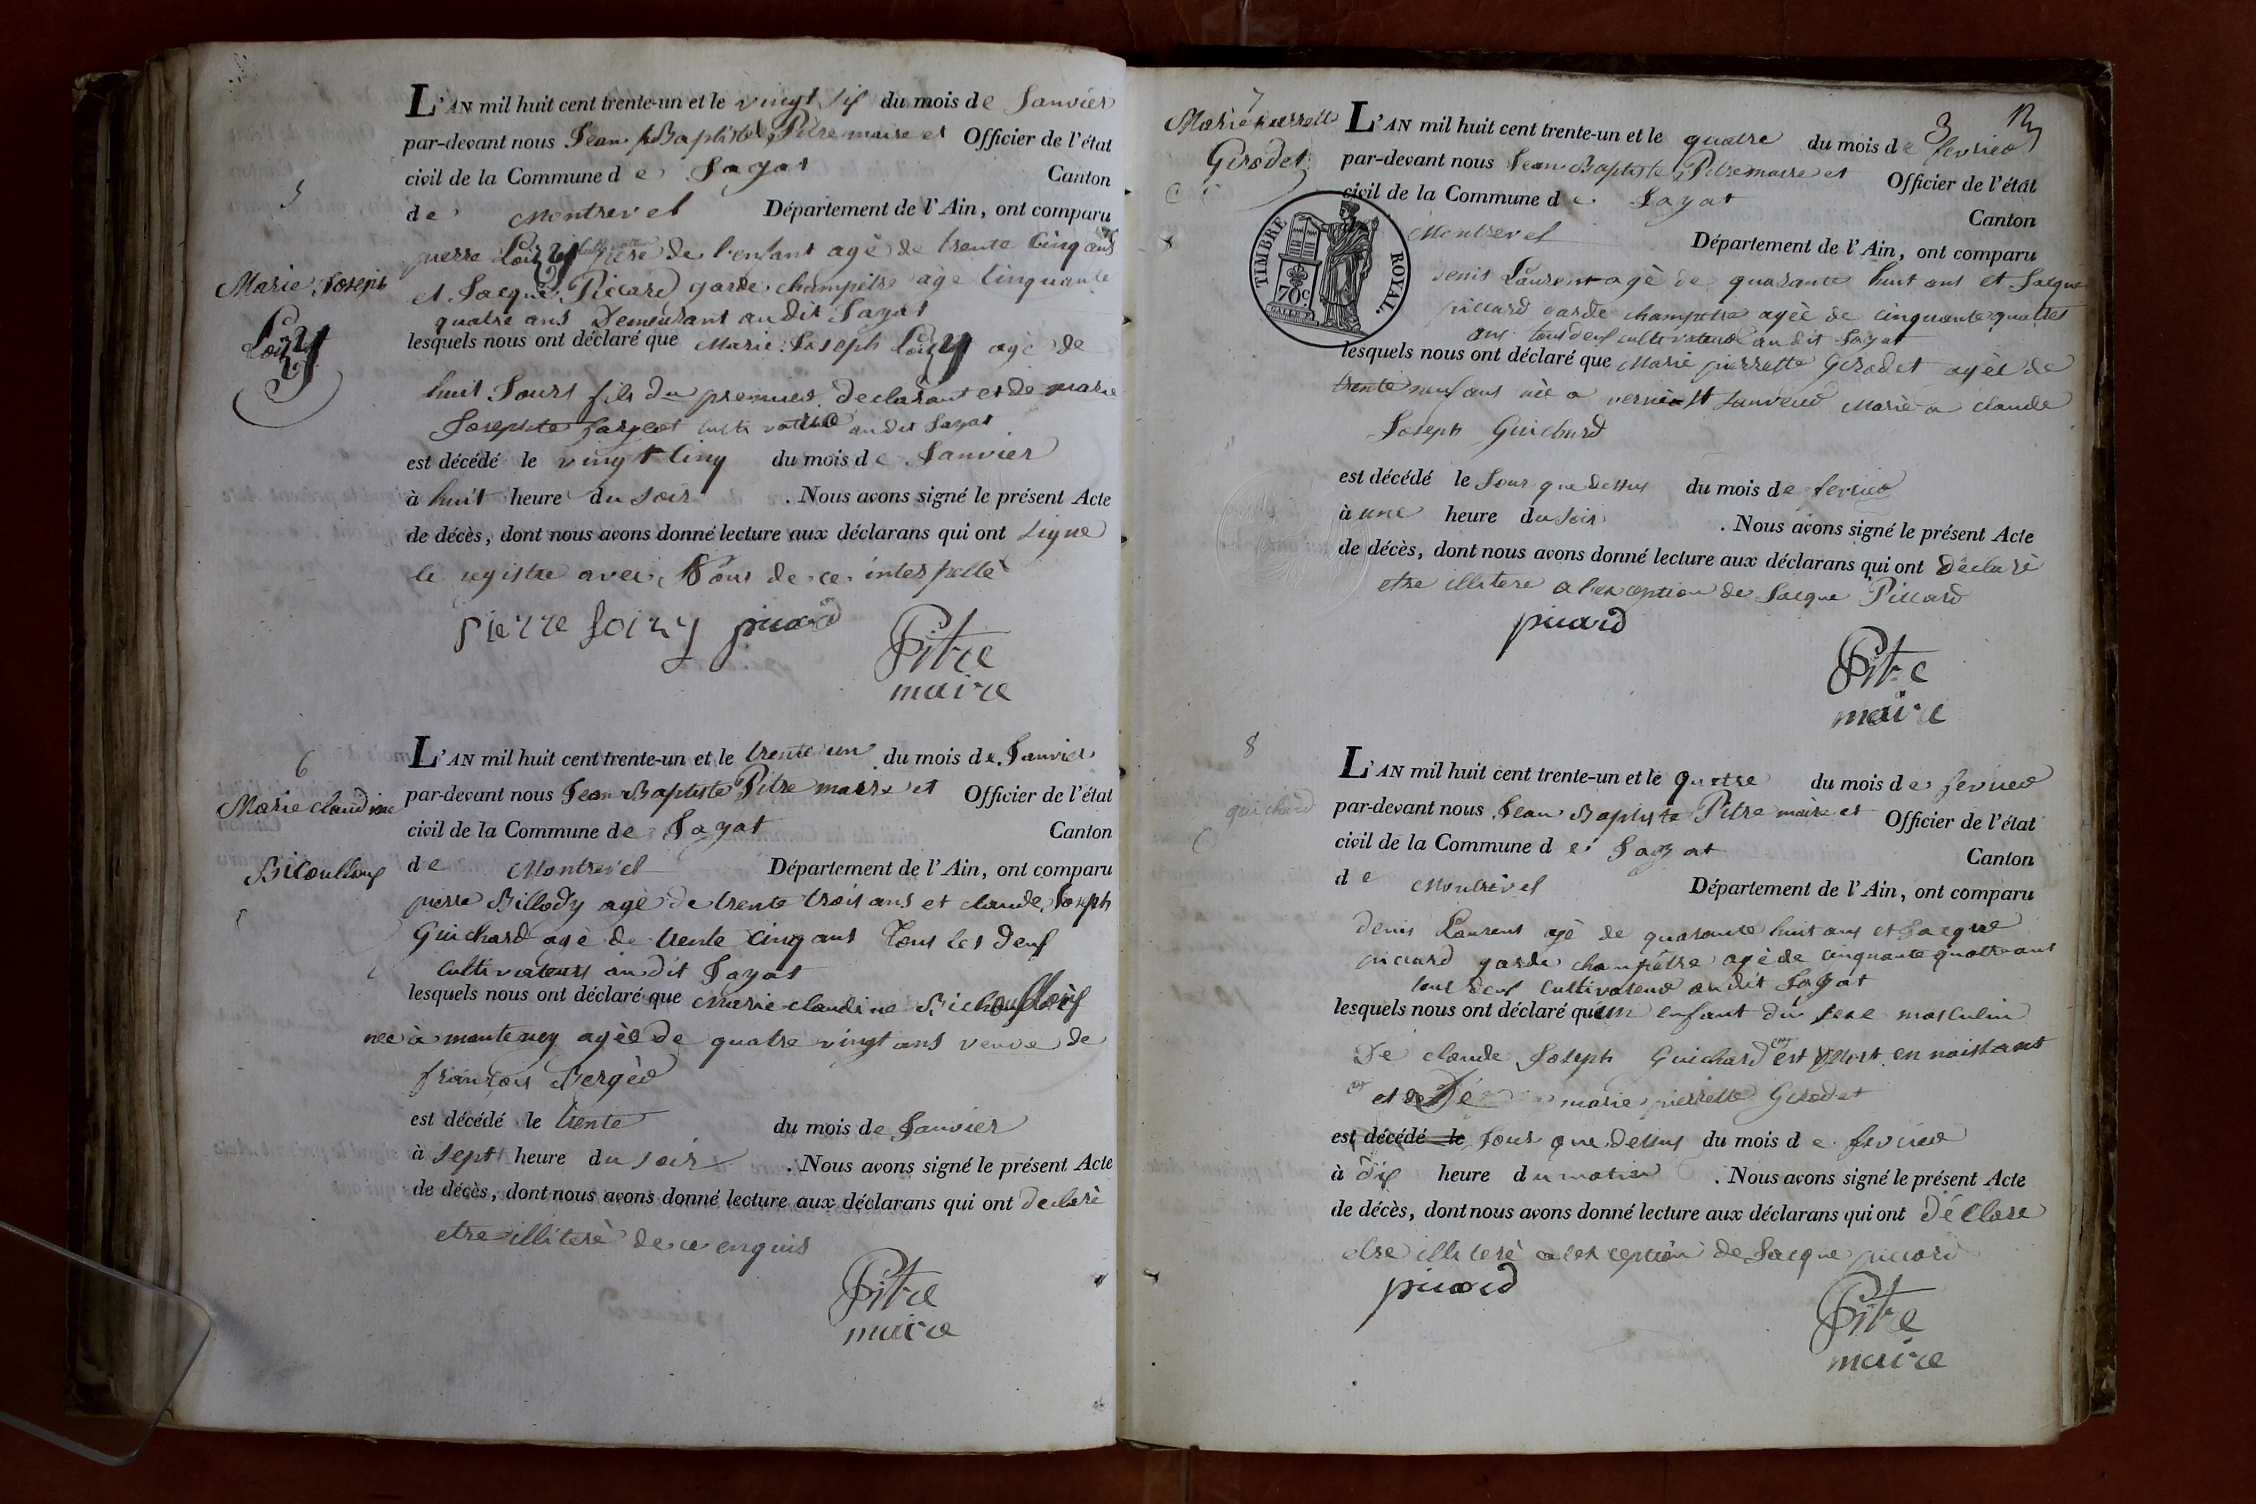 5
Marie Joseph
Loizy
L'AN mil huit cent trente-un et le vingt six du mois de Janvier
par-devant nous Jean Baptiste Pitre maire et Officier de l'état
civil de la Commune de Jayat Canton
de Montrevel Département de l'Ain, ont comparu
pierre Loizy père de l'enfant agè de trente Cinq ans
et Jacque Piccard garde champètre agè Cinquante
quatre ans Demeurant audit Jayat
lesquels nous ont déclaré que Marie Joseph Loizy agè de
huit Jours fils du premier declarant et de marie
Josephte cultivatrice audit Jayat
est décédé le vingt Cinq du mois de Janvier
à huit heure du soir . Nous avons signé le présent Acte
de décès, dont nous avons donné lecture aux déclarans qui ont signe
le registre avec Nous de ce interpellè
pierre loizy picard
Pitre
maire
6
Marie claudine
L'AN mil huit cent trente-un et le trente un du mois de Janvier
par-devant nous Jean Baptiste Pitre maire et Officier de l'état
civil de la Commune de Jayat Canton
de Montrevel Département de l'Ain, ont comparu
pierre Billody agè de trente trois ans et claude Joseph
Guichard agè de trente Cinq ans Tous les deux
Cultivateurs audit Jayat
lesquels nous ont déclaré que Marie claudine
neè à monteney agèe de quatre vingt ans veuve de
françois Bergèr
est décédé le trente du mois de Janvier
à sept heure du soir . Nous avons signé le présent Acte
de décès, dont nous avons donné lecture aux déclarans qui ont declarè
etre illiterè de ce enquis
Pitre
maire
3
7
Marie pierrette
Girodet
TIMBRE ROYAL.
70c
L'AN mil huit cent trente-un et le quatre du mois de fevrier
par-devant nous Jean Baptiste Pitre maire et Officier de l'état
civil de la Commune de Jayat Canton
Montrevel Département de l'Ain, ont comparu
denis Laurent agè de quarante huit ans et Jacque
piccard garde champetre agèe de cinquante quattre
ans tous deux cultivateur audit Jayat
lesquels nous ont déclaré que Marie pierrette Girodet agèe de
trente neuf ans nèe a Marièe a claude
Joseph Guichard
est décédé le Jour que dessus du mois de fevrier
à une heure du soir . Nous avons signé le présent Acte
de décès, dont nous avons donné lecture aux déclarans qui ont Déclarè
etre illitere a l'exception de Jacque Piccard
picard
Pitre
maire
8
guichard
L'AN mil huit cent trente-un et le quatre du mois de fevrier
par-devant nous Jean Baptiste Pitre maire et Officier de l'état
civil de la Commune de Jayat Canton
de Montrevel Département de l'Ain, ont comparu
denis Laurent agè de quarante huit ans et Jacque
piccard garde champêtre agè de cinquante quatre ans
tous deux Cultivateur audit Jayat
lesquels nous ont déclaré qu'un enfant du sexe masculin
De claude Joseph Guichard est Mort en naissant
et de marie pierrette Girodet
est décédé le Jour que dessus du mois de fevrier
à dix heure du matin . Nous avons signé le présent Acte
de décès, dont nous avons donné lecture aux déclarans qui ont Déclare
etre illiterè a l'exception de Jacque piccard
picard
Pitre
maire